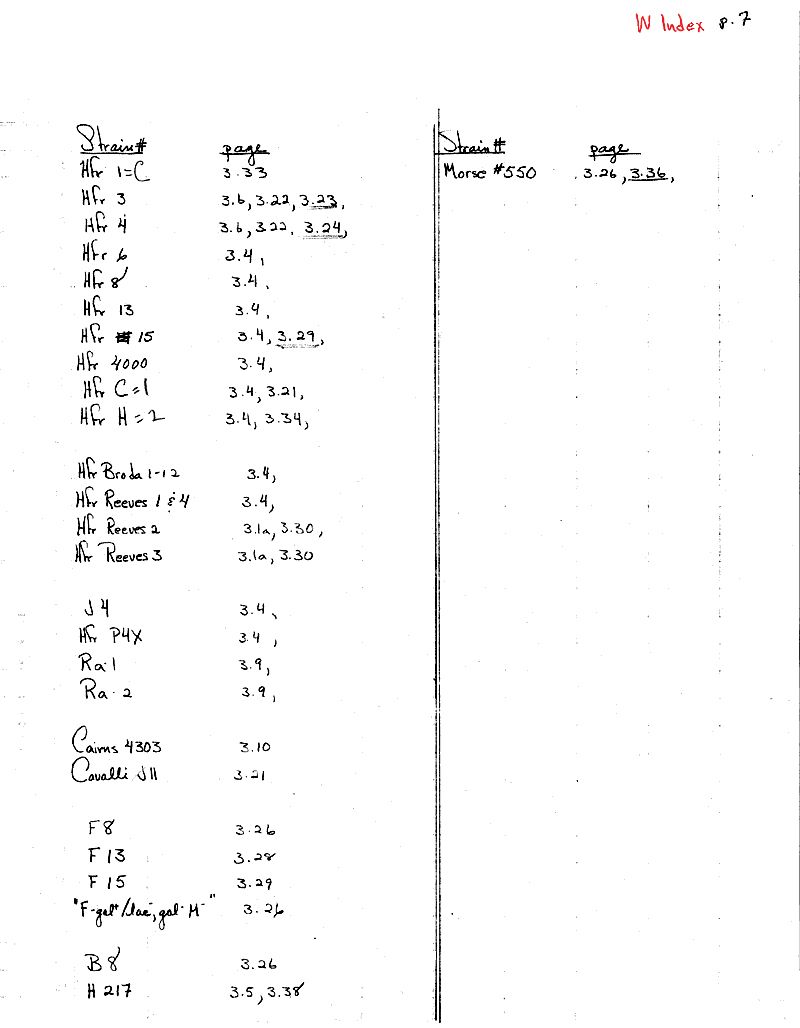 W Index p. 7
Strain# page
Hfr 1=C 3.33
Hfr 3 3.6, 3.22, 3.23,
Hfr 4 3.6, 3.22, 3.24,
Hfr 6 3.4,
Hfr 8 3.4,
Hfr 13 3.4,
Hfr # 15 3.4, 3.29,
Hfr 4000 3.4,
Hfr C=1 3.4, 3.21,
Hfr H=2 3.4, 3.34,
Hfr Broda 1-12 3.4,
Hfr Reeves 1 & 4 3.4,
Hfr Reeves 2 3.1a, 3.30,
Hfr Reeves 3 3.1a, 3.30
J4 3.4,
Hfr P4X 3.4,
Ra-1 3.9,
Ra-2 3.9,
Cairns 4303 3.10
Cavalli J11 3.21
F8 3.26
F13 3.28
F15 3.29
"F-gal+/lac-, gal- M-" 3.26
B8 3.26
H217 3.5, 3.38
Strain# page
Morse #550 3.26, 3.36,